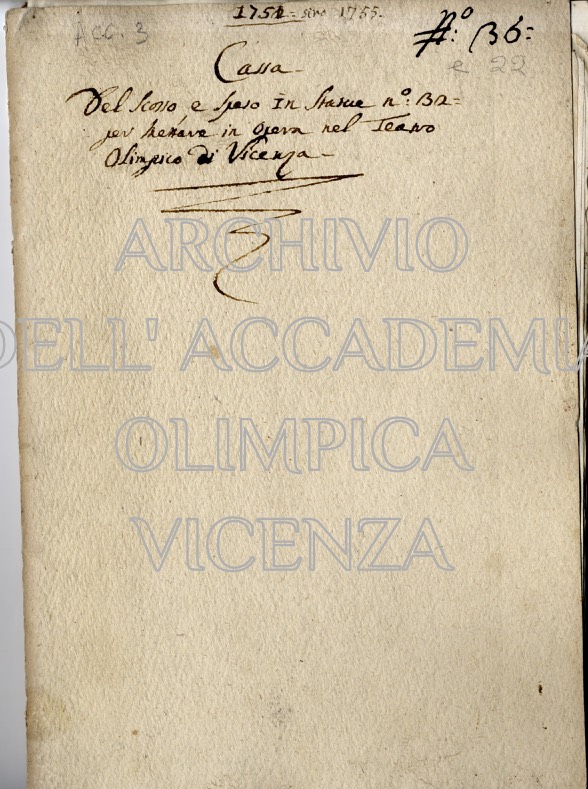 1751= sino 1755.
Acc. 3
N.º 136=
e 22
Cassa
Del Scosso, e Speso In Statue nº: 32=
per mettere in opera nel Teatro
Olimpico di Vicenza
ARCHIVIO
DELL' ACCADEMI
OLIMPICA
VICENZA